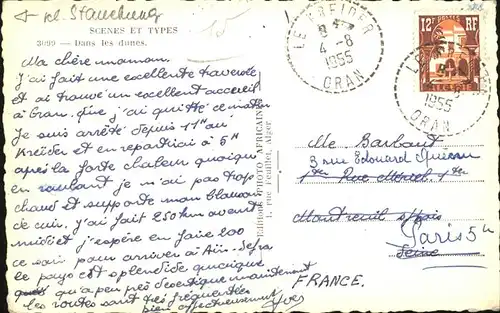 SCENES ET TYPES
3009 — Dans les dunes.
Ma chère maman.
J'ai fait une excellente traversée
et ai trouvé un excellent accueil
à Oran, que j'ai quitté ce matin
Je suis arrêté depuis 11h au
Kreider et en repartirai à 5h
après la forte chaleur quoique
en roulant je n'ai pas trop
chaud et supporte mon blouson
de cuir. J'ai fait 250 km avant
midi et j'espère en faire 200
ce soir pour arriver à Aïn-Sefra
le pays est splendide quoique
qu'a peu près désertique maintenant
les routes sont très fréquentées
bien affectueusement Yves
Editions PHOTO AFRICAINE
1, rue Feuillet, Alger
LE KREIDER
4-8
1955
ORAN
12F POSTES RF
ALGERIE
LE KREIDER
1955
ORAN
Me Barbaud
3 rue Edouard
Montreuil s/bois
Seine
Paris 5e
FRANCE.